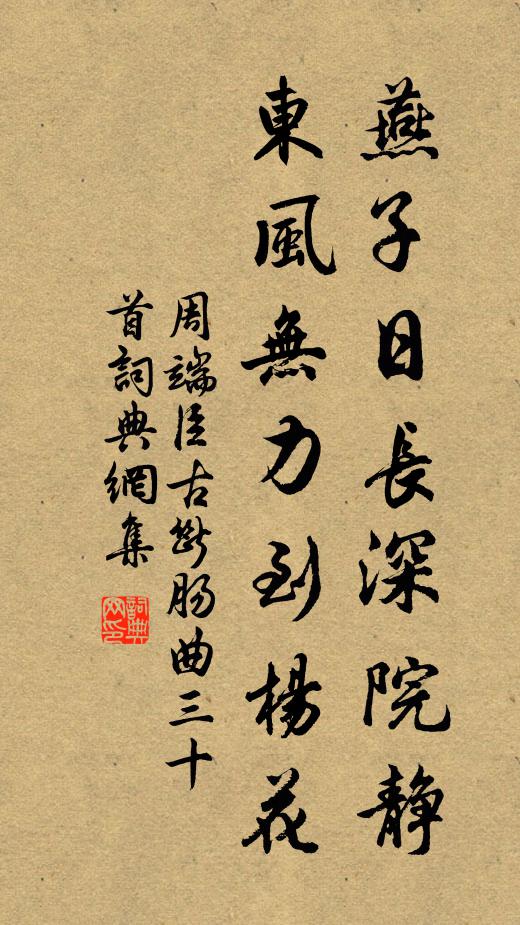 燕子日長深院静
東風無力到楊花
周端臣古斷肠曲三十
首詞典網集
詞典网印